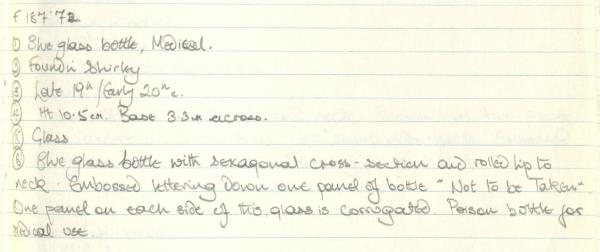 F 187'72
① Blue glass bottle, Medical.
② Found in Shirley
③ Late 19th/Early 20th c.
④ Ht 10.5cm. Base 3.3cm across.
⑤ Glass
⑥ Blue glass bottle with sexagonal cross-section and rolled lip to
neck. Embossed lettering down one panel of bottle "Not to be Taken".
One panel on each side of this glass is corrugated. Poison bottle for
Medical use.